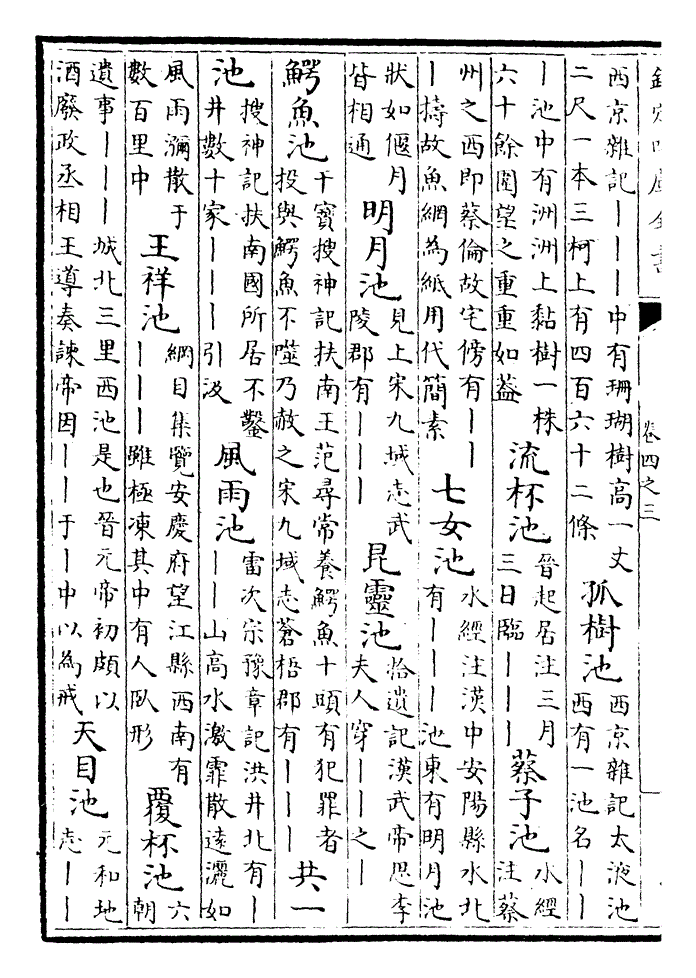 欽定四庫全書
卷四之三
西京雜記｜｜｜中有珊瑚樹高一丈
二尺一本三柯上有四百六十二條
孤樹池
西京雜記太液池
西有一池名｜｜
｜池中有洲洲上黏樹一株
六十餘圍望之重重如葢
流杯池
晉起居注三月
三日臨｜｜｜
蔡子池
水經
注蔡
州之西即蔡倫故宅傍有｜｜
｜擣故魚網為紙用代簡素
七女池
水經注漢中安陽縣水北
有｜｜｜池東有明月池
狀如偃月
皆相通
明月池
見上宋九域志武
陵郡有｜｜｜
昆靈池
拾遺記漢武帝思李
夫人穿｜｜之｜
鰐魚池
干寶搜神記扶南王范尋常養鰐魚十頭有犯罪者
投與鰐魚不噬乃赦之宋九域志蒼梧郡有｜｜｜
共一
池
搜神記扶南國所居不鑿
井數十家｜｜｜引汲
風雨池
雷次宗豫章記洪井北有｜
｜｜山高水激霏散遠灑如
風雨瀰散于
數百里中
王祥池
綱目集覽安慶府望江縣西南有
｜｜｜雖極凍其中有人臥形
覆杯池
六
朝
遺事｜｜｜城北三里西池是也晉元帝初頗以
酒廢政丞相王導奏諫帝因｜｜于｜中以為戒
天目池
元和地
志｜｜